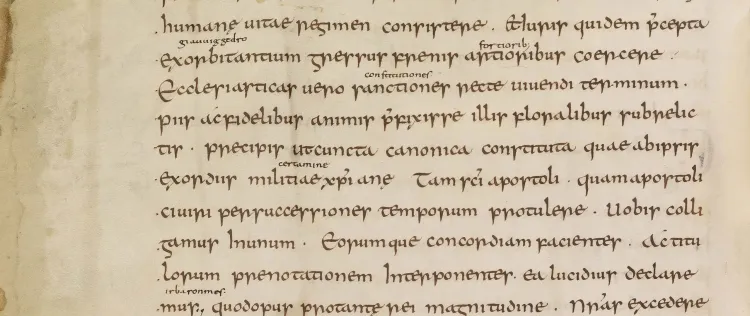 humanę vitae regimen consistere . Et iuris quidem p̄cepta
giauuiggedro
exorbitantium gressus frenis artioribus coercere .
fortiorib;
Ecclesiasticas uero sanctiones recte uiuendi terminum .
constitutiones
piis ac fidelibus animis p̄fixisse illis floralibus subrelic
tis . precipis ut cuncta canonica constituta quae ab ipsis
certamine
exordiis militiae xp̄i anę Tam sc̄i apostoli . quam apostoli
ci uiri per successiones temporum protulere . Nobis colli
gamus In unum . Eorumque concordiam facientes . Ac titu
lorum prenotationem Interponentes . ea lucidius declare
mus, quod opus pro tante rei magnitudine . Nr̄as excedere